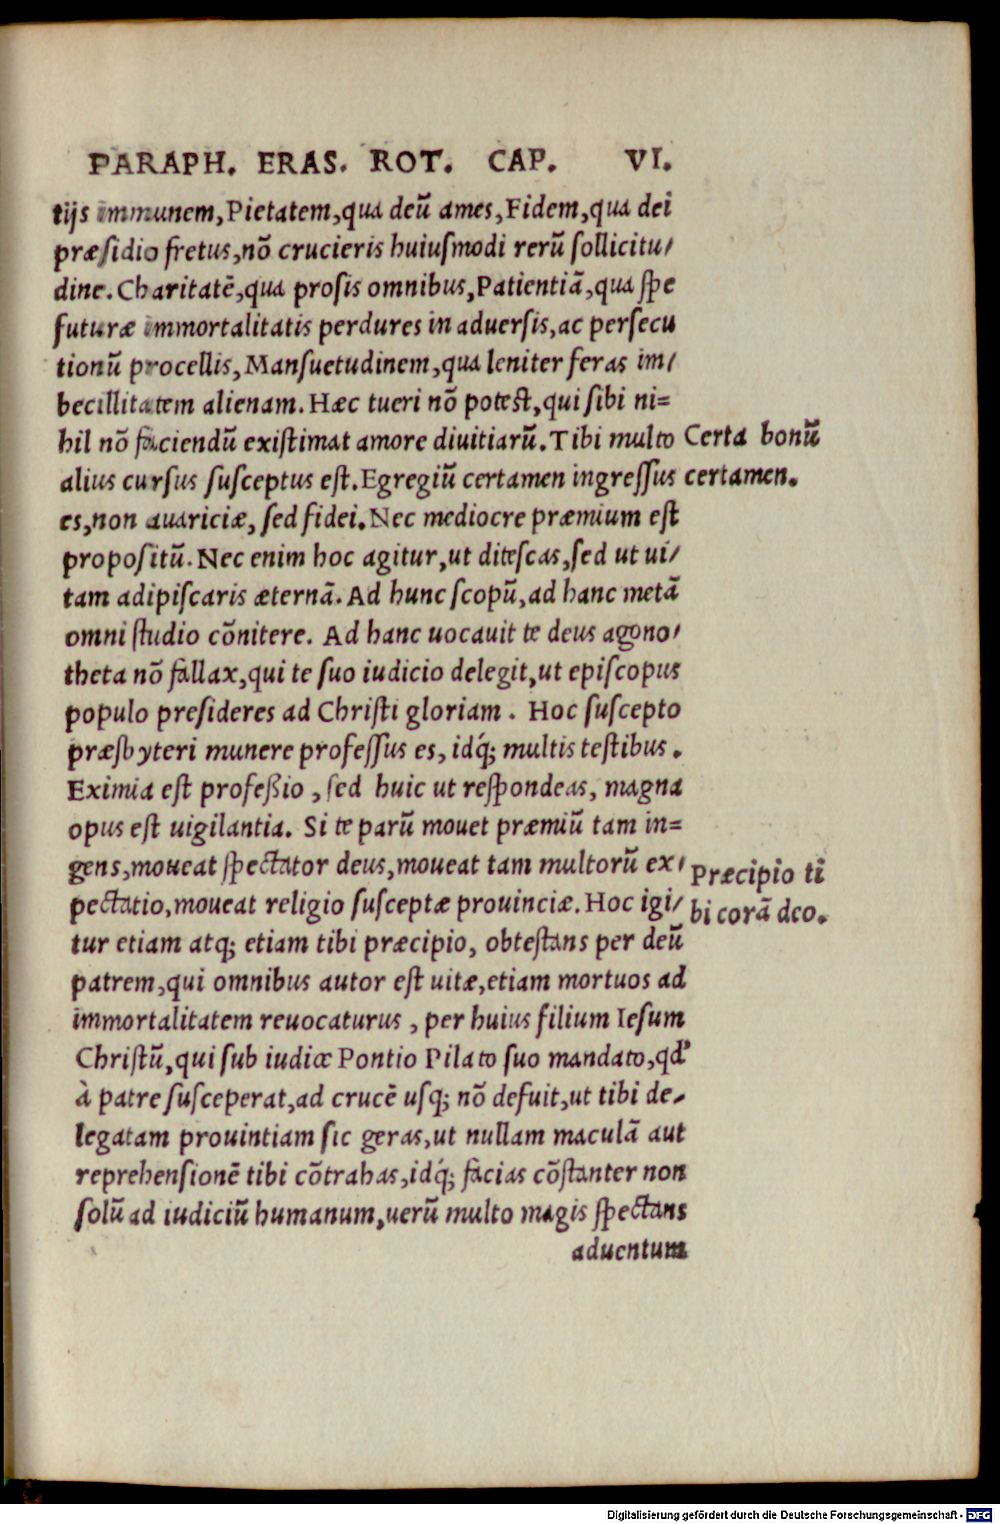 PARAPH. ERAS. ROT. CAP. VI.
tijs immunem, Pietatem, qua deū ames, Fidem, qua dei
præsidio fretus, nō crucieris huiusmodi rerū sollicitu/
dine. Charitatē, qua prosis omnibus, Patientiā, qua spe
futuræ immortalitatis perdures in aduersis, ac persecu
tionū procellis, Mansuetudinem, qua leniter feras im/
becillitatem alienam. Hæc tueri nō potest, qui sibi ni=
hil nō faciendū existimat amore diuitiarū. Tibi multo
alius cursus susceptus est. Egregiū certamen ingressus
es, non auariciæ, sed fidei. Nec mediocre præmium est
propositū. Nec enim hoc agitur, ut ditescas, sed ut ui/
tam adipiscaris æternā. Ad hunc scopū, ad hanc metā
omni studio cōnitere. Ad hanc uocauit te deus agono/
theta nō fallax, qui te suo iudicio delegit, ut episcopus
populo presideres ad Christi gloriam. Hoc suscepto
præsbyteri munere professus es, idq́; multis testibus.
Eximia est profeßio, sed huic ut respondeas, magna
opus est uigilantia. Si te parū mouet præmiū tam in=
gens, moueat spectator deus, moueat tam multorū ex/
pectatio, moueat religio susceptæ prouinciæ. Hoc igi/
tur etiam atq; etiam tibi præcipio, obtestans per deū
patrem, qui omnibus autor est uitæ, etiam mortuos ad
immortalitatem reuocaturus, per huius filium Iesum
Christū, qui sub iudice Pontio Pilato suo mandato, qđ
à patre susceperat, ad crucē usq; nō defuit, ut tibi de-
legatam prouintiam sic geras, ut nullam maculā aut
reprehensionē tibi cōtrahas, idq́; facias cōstanter non
solū ad iudiciū humanum, uerū multo magis spectans
aduentum
Certa bonū
certamen.
Præcipio ti
bi corā deo.
Digitalisierung gefördert durch die Deutsche Forschungsgemeinschaft - DFG